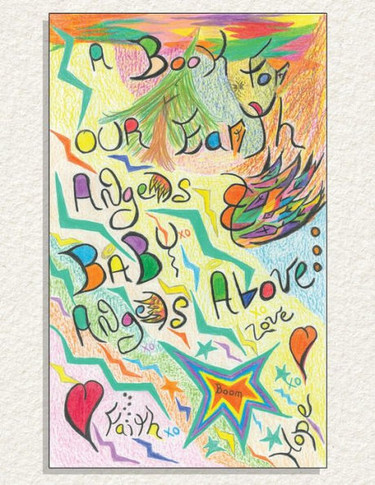 A Book For
OUR Earth
Angels
BABY xo
Angels Above...
Love
xo
xo
xo
Boom
Faith xo
Hope